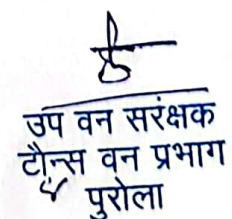 उप वन सरंक्षक
टौन्स वन प्रभाग
पुरोला